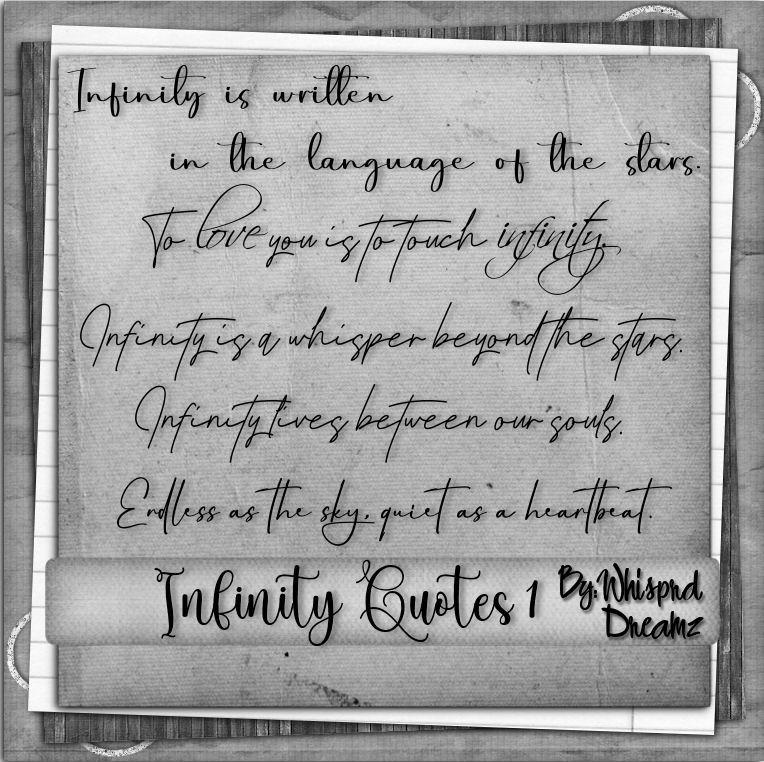 Infinity is written
in the language of the stars.
To love you is to touch infinity.
Infinity is a whisper beyond the stars.
Infinity lives between our souls.
Endless as the sky, quiet as a heartbeat.
Infinity Quotes 1
By: Whisprd
Dreamz